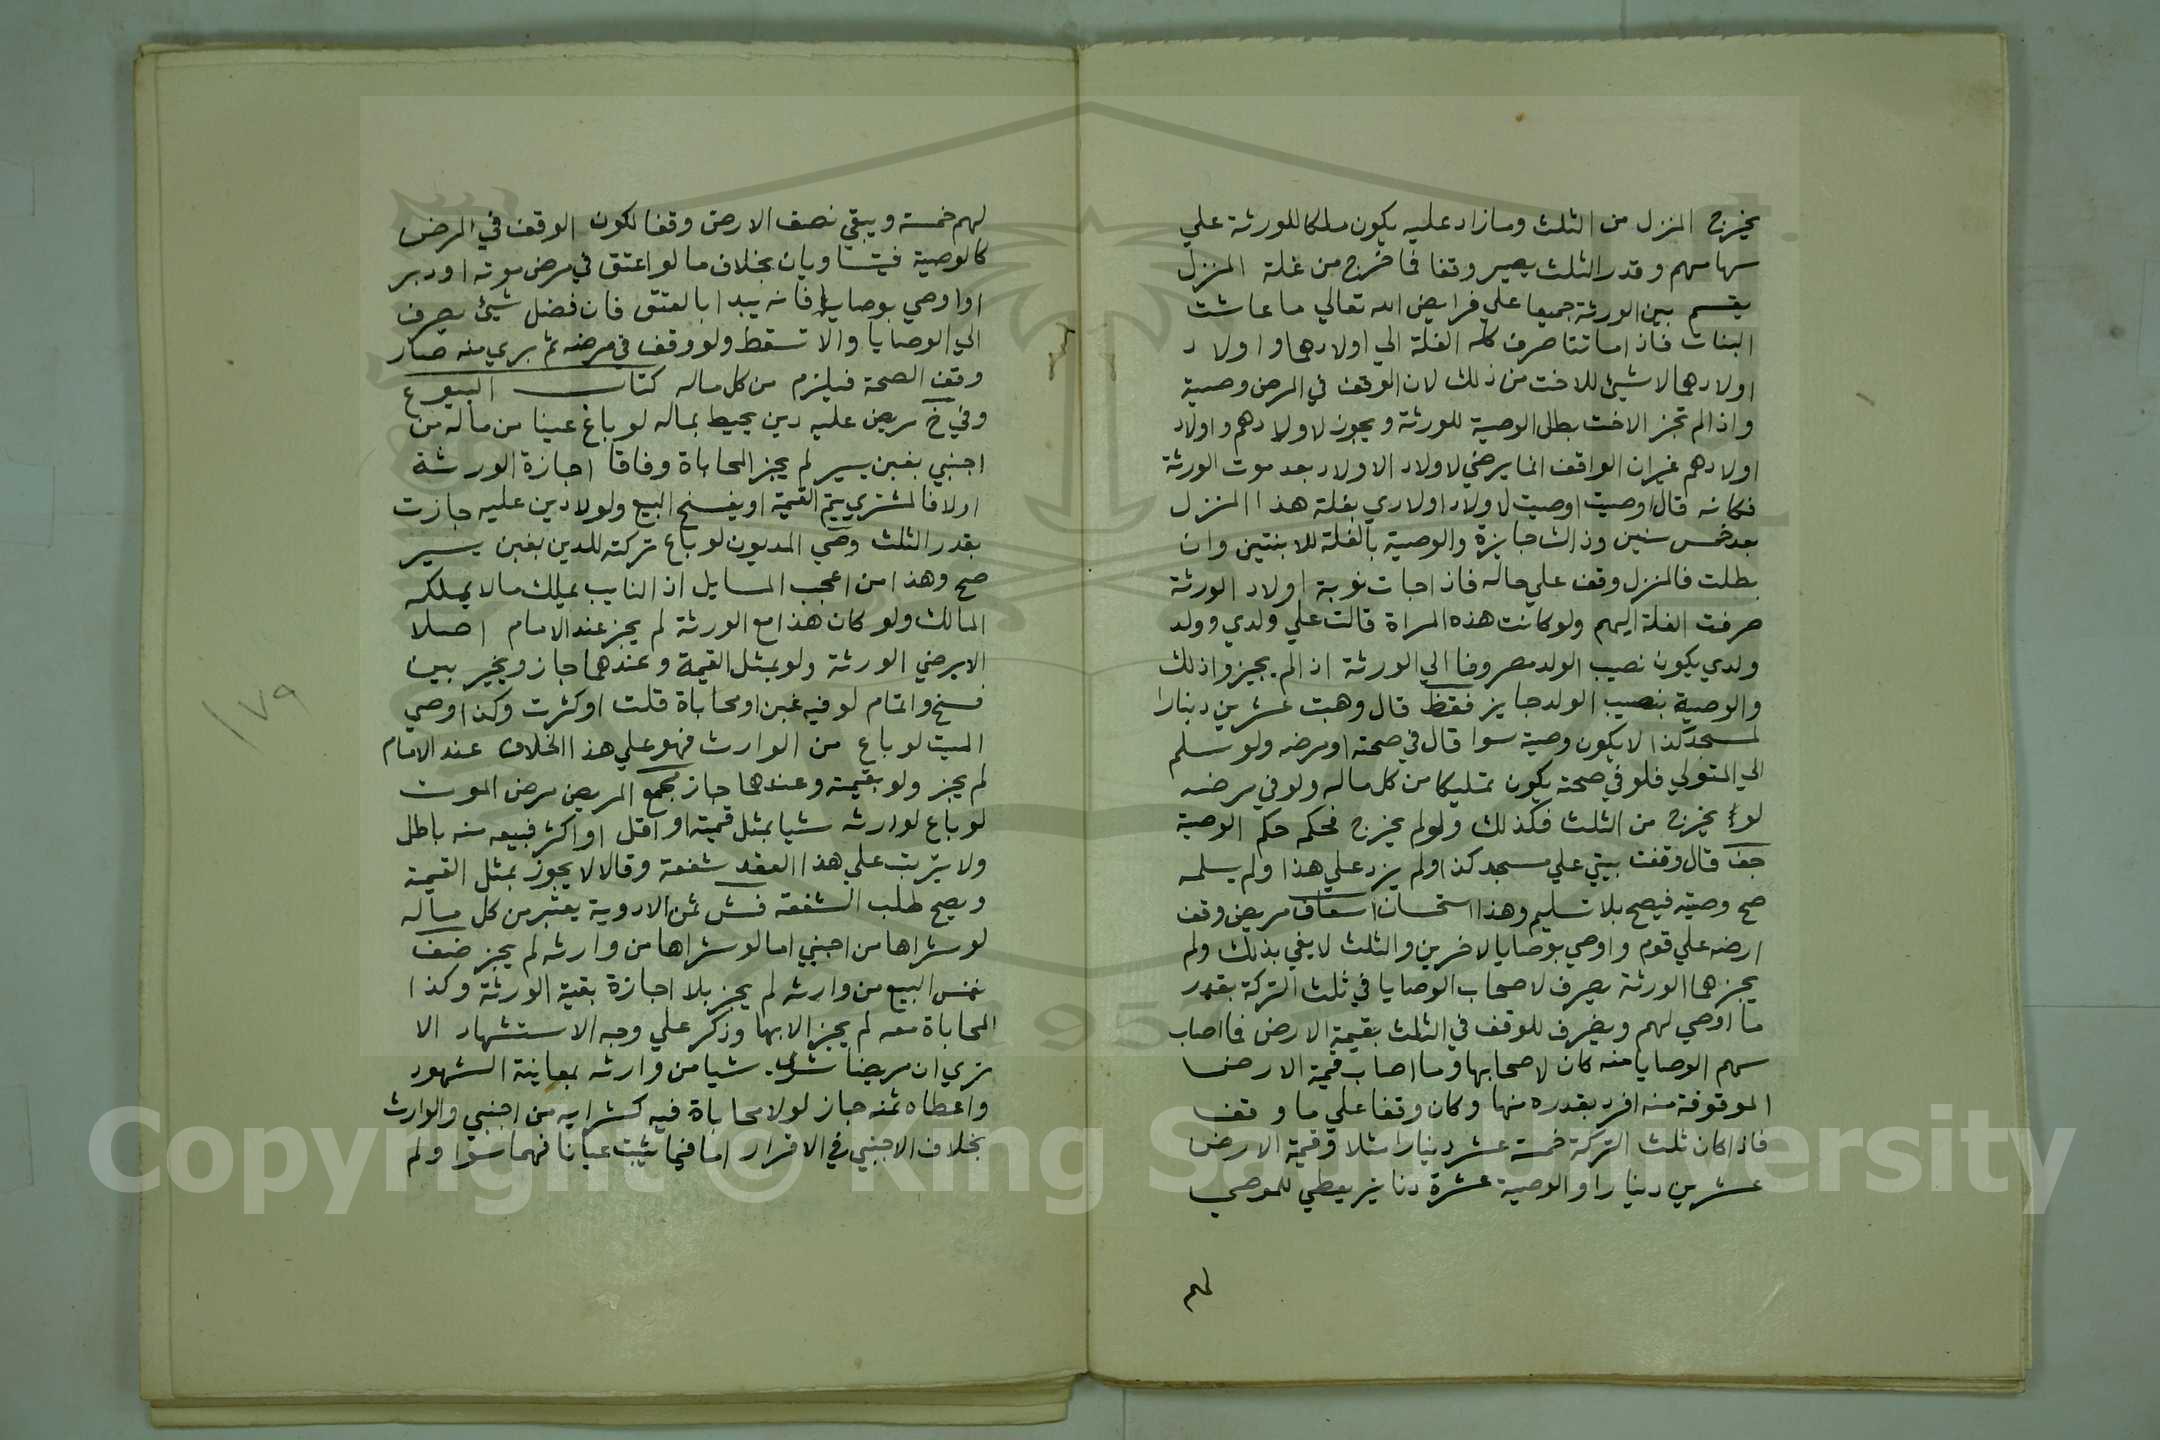 يخرج المنزل من الثلث ومازاد عليه يكون ملكا للورثة علي
سهامهم وقدر الثلث يصير وقفا فما خرج من غلة المنزل
يقسم بين الورثة جميعا علي فرايض الله تعالي ما عاشت
البنات فاذا ماتتا صرف كله الغلة الي اولادهما واولاد
اولادهما لا شيئ للاخت من ذلك لان الوقف في المرض وصية
واذا لم تجز الاخت بطل الوصية للورثة ويجوز لاولادهم واولاد
اولادهم غير ان الواقف انما يرضي لاولاد الاولاد بعد موت الورثة
فكانه قال اوصيت اوصيت لاولاد اولادي بغلة هذا المنزل
بعد خمس سنين وذلك جايزة والوصية بالغلة للابنتين وان
بطلت فالمنزل وقف علي حاله فاذا جات نوبة اولاد الورثة
صرفت الغلة اليهم ولو كانت هذه المراة قالت علي ولدي وولد
ولدي يكون نصيب الولد مصروفا الي الورثة اذا لم يجيزوا ذلك
والوصية بنصيب الولد جايز فقط قال وهبت عشرين دينارا
لمسجد كذا لا يكون وصية سوا قال في صحته او مرضه ولو سلم
الي المتولي فلو في صحته يكون تمليكا من كل ماله ولو في مرضه
لو يخرج من الثلث فكذلك ولو لم يخرج فحكمه حكم الوصية
جف قال وقفت بيتي علي مسجد كذا ولم يزد علي هذا ولم يسلمه
صح وصيته فيصح بلا تسليم وهذا استحسان اسعاف مريض وقف
ارضه علي قوم واوصي بوصايا لاخرين والثلث لا يفي بذلك ولم
يجزهما الورثة يصرف لاصحاب الوصايا في ثلث التركة بقدر
ما اوصي لهم ويضرف للوقف في الثلث بقيمة الارض فما اصاب
سهم الوصايا منه كان لاصحابها وما اصاب قيمة الارض
الموقوفة منه افرد بقدره منها وكان وقفا علي ما وقف
فاذا كان ثلث التركة خمسة عشر دينارا مثلا وقيمة الارض
عشرين دينارا والوصية عشرة دنانير يعطي للموصي
لهم
لهم خمسة ويبقي نصف الارض وقفا لكون الوقف في المرض
كالوصية فيتساويان بخلاف ما لو اعتق في مرض موته او دبر
او اوصي بوصايا فانه يبدا بالعتق فان فضل شيئ يصرف
الي الوصايا والا تسقط ولو وقف في مرضه ثم بري منه صار
وقف الصحة فيلزم من كل ماله كتاب البيوع
وفي خ مريض عليه دين يحيط بماله لو باع عينا من ماله من
اجنبي بغبن يسير لم يجز المحاباة وفاقا اجازة الورثة
اولا فالمشتري يتم القيمة او يفسخ البيع ولو لا دين عليه جازت
بقدر الثلث وصي المديون لو باع تركته للدين بغبن يسير
صح وهذا من اعجب المسايل اذ النايب يملك مالا يملكه
المالك ولو كان هذا مع الورثة لم يجز عند الامام اصلا
الا برضي الورثة ولو بمثل القيمة وعندهما جاز ويخير بين
فسخ واتمام لو فيه غبن او محاباة قلت او كثرت وكذا وصي
الميت لو باع من الوارث فهو علي هذا الخلاف عند الامام
لم يجز ولو بقيمته وعندهما جاز مجمع المريض مرض الموت
لو باع لوارثه شيا بمثل قيمته او اقل او اكثر فبيعه منه باطل
ولا يترتب علي هذا العقد شفعة وقالا لا يجوز بمثل القيمة
ويصح طلب الشفعة فش ثمن الادوية يعتبر من كل ماله
لو شراها من اجنبي اما لو شراها من وارثه لم يجز ضف
نفس البيع من وارثه لم يجز بلا اجازة بقية الورثة وكذا
المحاباة معه لم يجز الا بها وذكر علي وجه الاستشهاد الا
تري ان مريضا شري شيا من وارثه بمعاينة الشهود
واعطاه ثمنه جاز لو لا محاباة فيه كشرايه من اجنبي والوارث
بخلاف الاجنبي في الاقرار اما فيما يثبت عيانا فهما سوا ولم
١٧٩
Copyright © King Saud University
1957